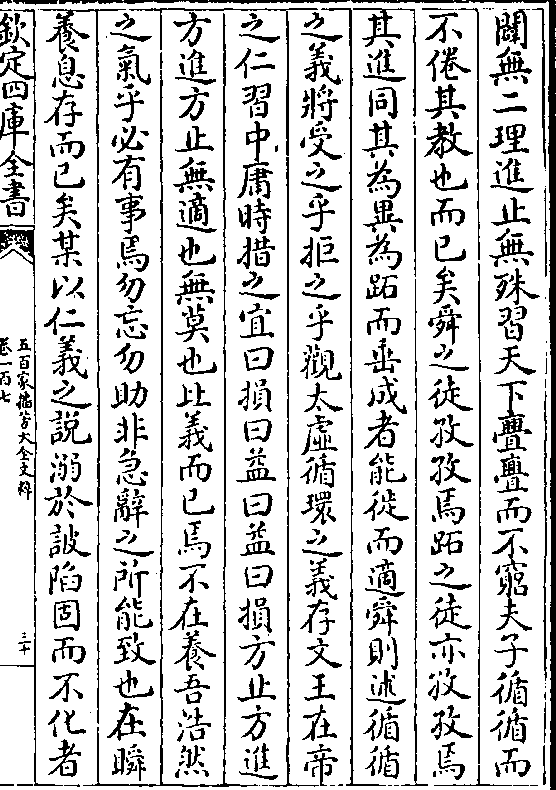 闢無二理進止無殊習天下亹亹而不窮夫子循循而
不倦其教也而已矣舜之徒孜孜焉跖之徒亦孜孜焉
其進同其為異為跖而垂成者能徙而適舜則述循循
之義將受之乎拒之乎觀太虛循環之義存文王在帝
之仁習中庸時措之宜曰損曰益曰益曰損方止方進
方進方止無適也無莫也比義而已焉不在養吾浩然
之氣乎必有事焉勿忘勿助非急辭之所能致也在瞬
養息存而已矣某以仁義之說溺於詖陷固而不化者
欽定四庫全書
五百家播芳大全文粹
卷一百七
三十